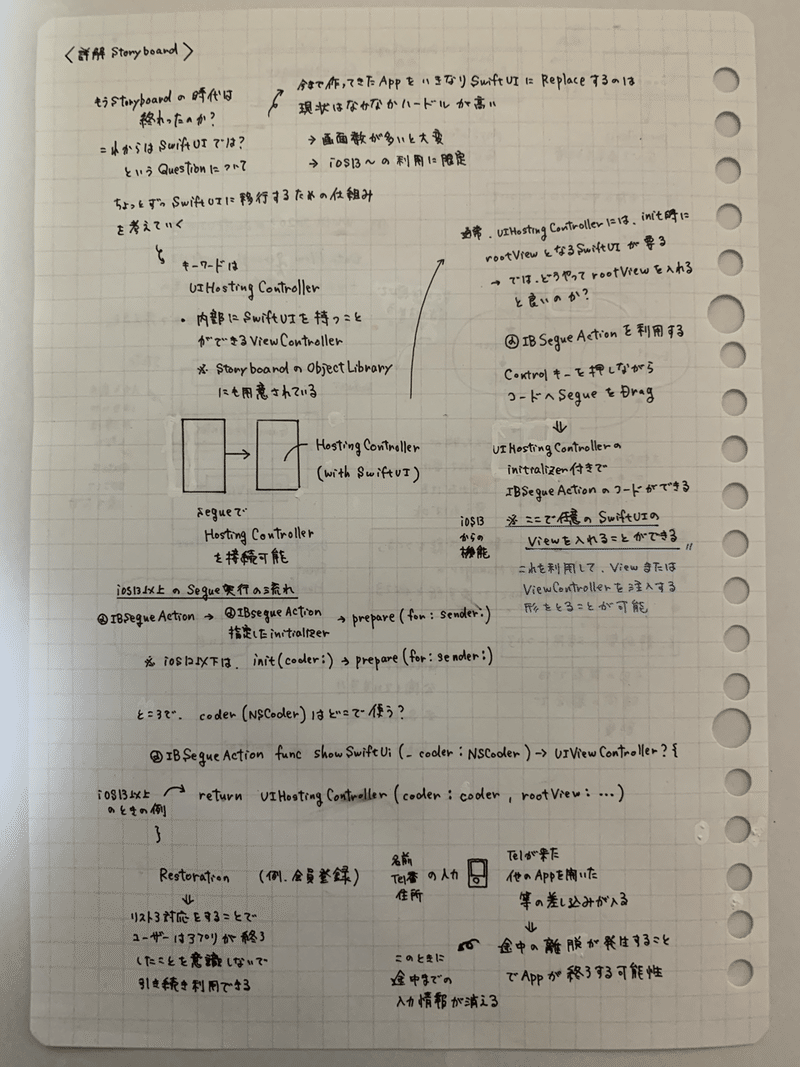 〈詳解 Storyboard〉
もうStoryboardの時代は
終わったのか?
これからはSwiftUIでは?
というQuestionについて
今まで作ってきたAppをいきなりSwiftUIにReplaceするのは
現状はなかなかハードルが高い
→ 画面数が多いと大変
→ iOS13〜の利用に限定
ちょっとずつSwiftUIに移行するための仕組み
を考えていく
キーワードは
UIHosting Controller
・内部にSwiftUIを持つこと
ができるViewController
※ StoryboardのObject Library
にも用意されている
Hosting Controller
(with SwiftUI)
Segueで
Hosting Controller
を接続可能
通常、UIHosting Controllerには、init時に
rootViewとなるSwiftUIが要る
→ では、どうやってrootViewを入れる
と良いのか?
@IBSegueActionを利用する
Controlキーを押しながら
コードへSegueをDrag
⇓
UIHosting Controllerの
initializer付きで
IBSegueActionのコードができる
iOS13
からの
機能
※ ここで任意のSwiftUIの
Viewを入れることができる〃
これを利用して、Viewまたは
ViewControllerを注入する
形をとることが可能
iOS13以上のSegue実行の流れ
@IBSegueAction → @IBSegueAction → prepare(for: sender:)
指定したinitializer
※ iOS12以下は、init(coder:) → prepare(for: sender:)
ところで、coder(NSCoder)はどこで使う?
@IBSegueAction func showSwiftUi(_ coder: NSCoder) -> UIViewController? {
iOS13以上
のときの例
return UIHosting Controller(coder: coder, rootView: ...)
}
Restoration (例.会員登録)
⇓
リストア対応をすることで
ユーザーはアプリが終了
したことを意識しないで
引き続き利用できる
名前
Tel番
住所
の入力
Telが来た
他のAppを開いた
等の差し込みが入る
⇓
途中の離脱が発生すること
でAppが終了する可能性
このときに
途中までの
入力情報が消える